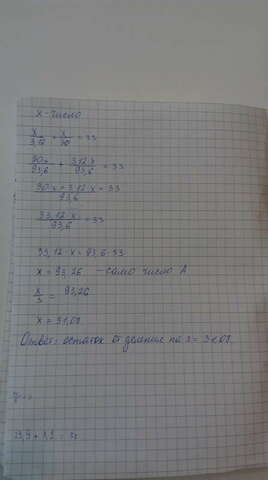 x - число
x/3,12 + x/30 = 33
30x/93,6 + 3,12x/93,6 = 33
30x + 3,12x/93,6 = 33
33,12x/93,6 = 33
33,12 · x = 93,6 · 33
x = 93,26 – само число А
x/3 = 93,26
x = 31,08
Ответ: остаток от деления на 3 = 31,08.